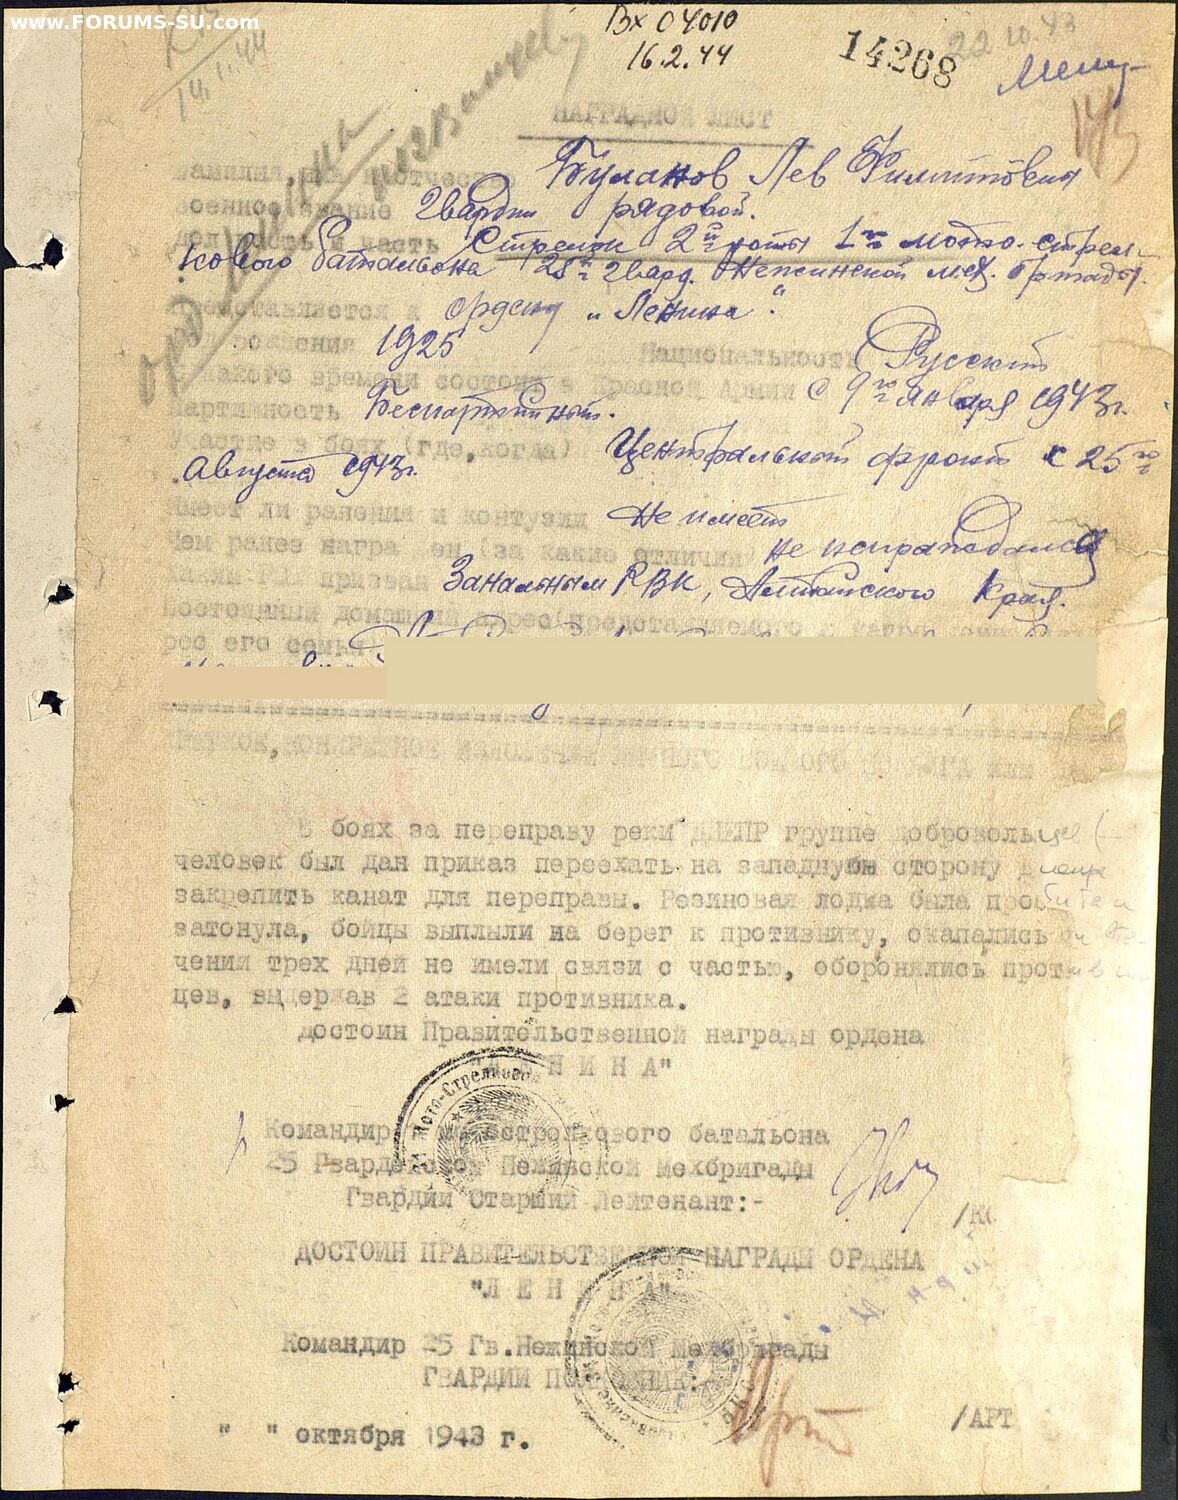 www.FORUMS-SU.com
Вх 04010
16.2.44
14268
22 10.43
НАГРАДНОЙ ЛИСТ
Фамилия, имя отчество Буланов Лев Филиппович
военное звание Гвардии рядовой.
должность и часть Стрелок 2й роты 1го мото-стрел-
кового батальона 25й Гвард. Нежинской мех. бригады.
представляется к Ордену "Ленина".
рождения 1925 Национальность Русский
какого времени состоит в Красной Армии С 9го января 1943г.
партийность Беспартийный.
Участие в боях (где, когда) Центральный фронт с 25го
августа 1943г.
Имеет ли ранения и контузии Не имеет
Чем ранее награжден (за какие отличия) не награждался
Каким РВК призван РВК, Алтайского Края.
Постоянный домашний адрес представляемого
рес его семьи
КРАТКОЕ, КОНКРЕТНОЕ ИЗЛОЖЕНИЕ ЛИЧНОГО БОЕВОГО ПОДВИГА ИЛИ
В боях за переправу реки ДНЕПР группе добровольцев
человек был дан приказ переехать на западную сторону Днепра
закрепить канат для переправы. Резиновая лодка была пробита и
затонула, бойцы выплыли на берег к противнику, окапались и в те-
чении трех дней не имели связи с частью, оборонялись против
цев, выдержав 2 атаки противника.
достоин Правительственной награды ордена
"ЛЕНИНА"
Мото-Стрелковой
Командир мотострелкового батальона
25 Гвардейской Нежинской Мехбригады
Гвардии Старший Лейтенант:-
ДОСТОИН ПРАВИТЕЛЬСТВЕННОЙ НАГРАДЫ ОРДЕНА
"ЛЕНИНА"
Командир 25 Гв.Нежинской Мехбригады
ГВАРДИИ ПОЛКОВНИК:
/АРТ
" " октября 1943 г.